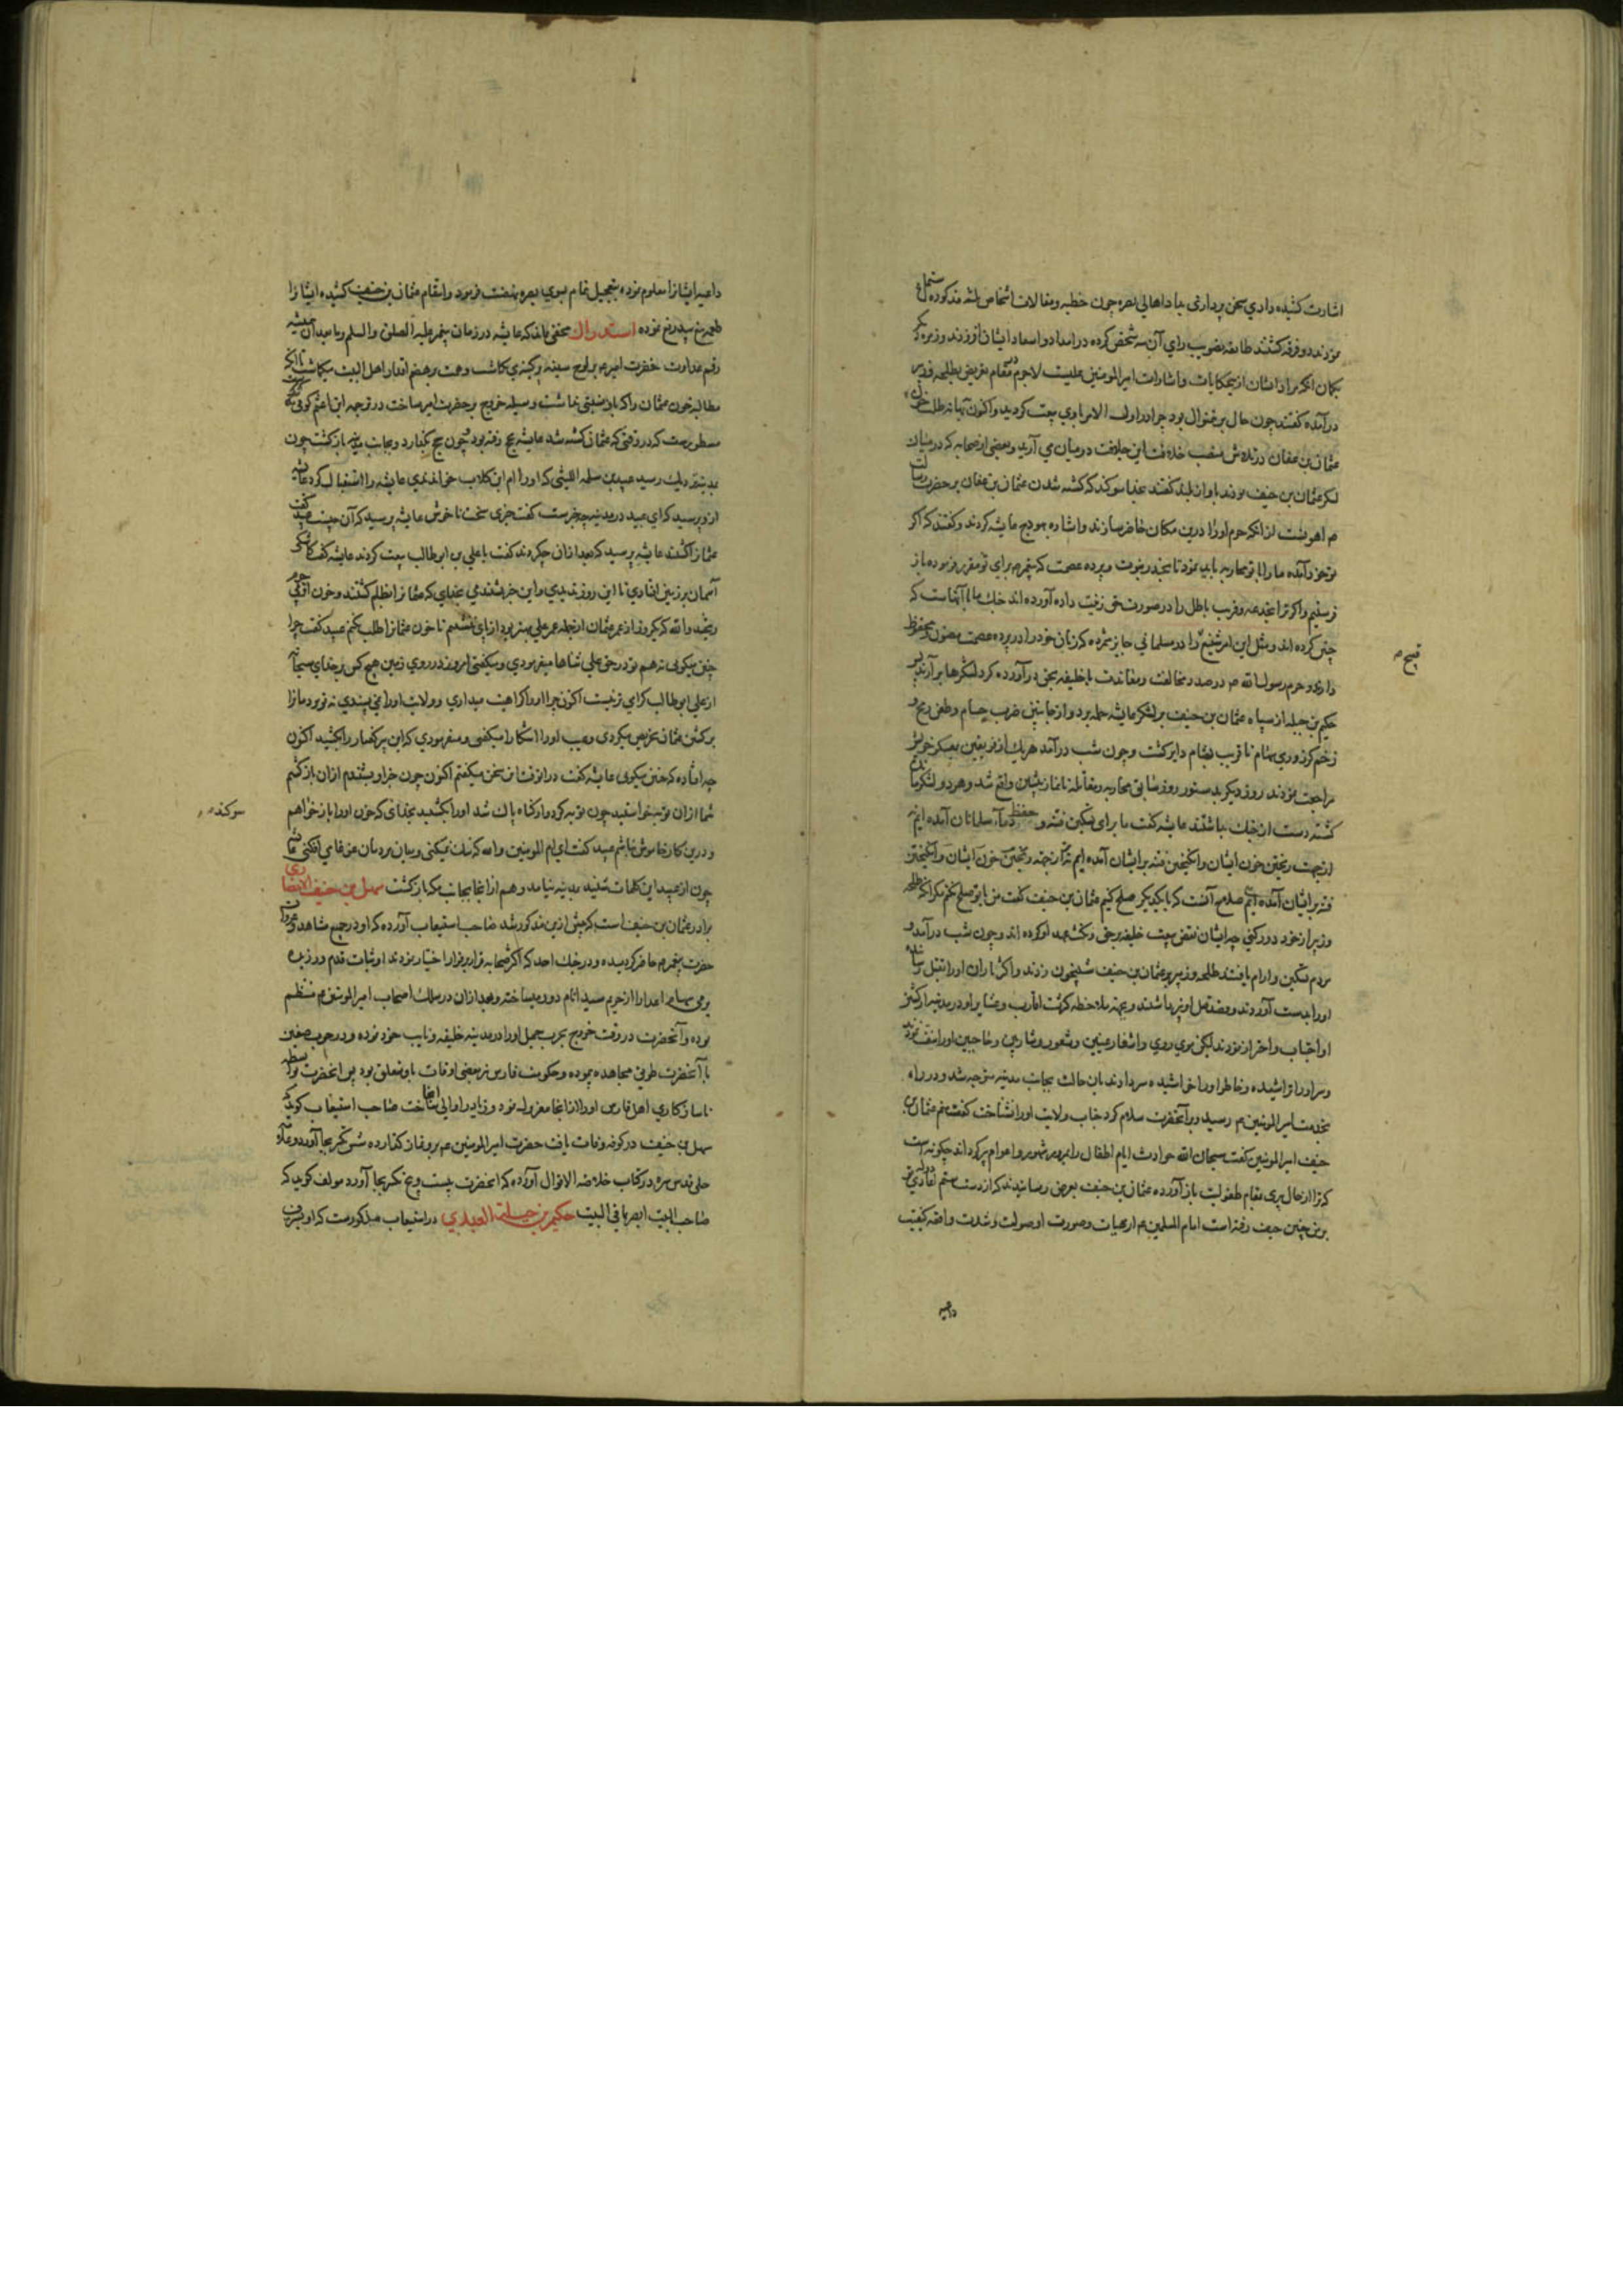 اشارت کشیده وادی سخن پردازی بیاد اهالی بصره چون خطبه و مقالات اشخاص ثلثه مذکوره استماع
نمودند دو فرقه کشتند طایفه تصویب رای آن سه شخص کرده در امداد و اسعاد ایشان افزودند و زمره
کمان آنکه مراد ایشان از حکایات و اشارات امیر المومنین علیست لاجرم در مقام تعریض بطلحه و زبیر
درآمده کفتند چون حال برین منوال بود چرا در اول الامر با وی بیعت کردید و اکنون بهانه طلب خون
عثمان بن عفان در میان می آرید و بعضی از صحابه که در میان
لشکر عثمان بن حنیف بودند باواز بلند کفتند بخدا سوکند که کشته شدن عثمان بن عفان بر حضرت رسالت
م اهونست از آنکه حرم او را درین مکان حاضر سازند و اشاره بهودج عایشه کردند و کفتند که اکر
تو خود آمده ما را با تو محاربه باید نمود تا بخدر نبوت و پرده عصمت که پیغمبر م برای تو مقرر فرموده باز
فرستیم و اکر ترا بخدعه و فریب باطل را در صورت حق زینت داده آورده اند جنک ما با آنهاست که
چنین کرده اند و مثل این امر شنیع را در مسلمانی جایز شمرده که زنان خود را در پرده عصمت مصون و محفوظ
قبیح م
دارند و حرم رسول الله م در صدد مخالفت و معاندت با خلیفه بحق درآورده کرد لشکرها برآرند پس
حکیم بن جبله از سپاه عثمان بن حنیف بر لشکر عایشه حمله برد و از جانبین ضرب حسام و طعن رمح و
زخم کرد وری سهام تا قریب بشام دایر کشت و چون شب درآمد هر یک از فریقین بمعسکر خویش
مراجعت نمودند روز دیکر بدستور روز سابق محاربه و مقاتله تا نماز پیشین واقع شد و هر دو لشکر مانده
کشته دست از جنک باشتند عایشه کفت ما برای تسکین فتنه و حفظ دماء مسلمانان آمده ایم نه
از جهت ریختن خون ایشان و انکیختن فتنه بر ایشان آمده ایم نه از جهت ریختن خون ایشان و انکیختن
فتنه بر ایشان آمده ایم صلاح آنست که با یکدیکر صلح کنیم عثمان بن حنیف کفت من با تو صلح نکنم مکر آنکه طلحه
و زبیر از خود دور کنی چه ایشان نقض بیعت خلیفه بحق و نکث عهد او کرده اند و چون شب درآمد و
مردم تسکین و آرام یافتند طلحه و زبیر بر عثمان بن حنیف شبیخون زدند و اکثر یاران او را بقتل رسانیده
او را بدست آوردند و قصد قتل او نیز داشتند و بجهة ملاحظه کثرت اقارب و عشایر او در مدینه از کشتن
او اجتناب و احتراز نمودند لیکن موی روی و اشفار عینین و شعور و شارب و حاجبین او را نتف نمودند
و سر او را تراشیده و خاطر او را خراشیده سر دادند بان حالت بجانب مدینه متوجه شد و در راه
بخدمت امیر المومنین م رسید و بر آنحضرت سلام کرد جناب ولایت او را نشناخت کفت منم عثمان بن
حنیف امیر المومنین کفت سبحان الله حوادث ایام اطفال را بمرور شهور و اعوام پیر کرداند چکونه است
که ترا از حال پیری بمقام طفولیت باز آورده عثمان بن حنیف بعرض رسانیدند که از دست ستم
بر من چنین حیف رفته است امام المسلمین م از هیات و صورت او صولت و شدت واقعه
داعیه
داعیه ایشانرا معلوم نموده بتعجیل تمام بسوی بصره نهضت فرمود و انتقام عثمان بن حنیف کشیده ایشانرا
طعمه تیغ بیدریغ نموده استدراک مخفی نماند که عایشه در زمان پیغمبر علیه الصلوة و السلم و ما بعد آن همیشه
رقم عداوت حضرت امیر م بر لوح سینه پر کینه می نکاشت و همت بر هضم اقتدار اهل البیت میکماشت تا آنکه
مطالبه خون عثمان را که باو نسبتی نداشت وسیله خروج بر حضرت امیر ساخت در ترجمه ابن اعثم کوفی
مسطورست که در وقتی که عثمان کشته شد عایشه بحج رفته بود چون حج بکذارد و بجانب مدینه باز کشت چون
بمدینه نزدیک رسید عبید بن سلمه اللیثی که او را ام ابن کلاب خواندندی عایشه را استقبال کرد عایشه
از و پرسید که ای عبید در مدینه چه خبرست کفت خبری سخت ناخوش عایشه پرسید که آن چیست عبید کفت
عثمانرا کشتند عایشه پرسید که بعد از آن چه کردند کفت با علی بن ابو طالب بیعت کردند عایشه کفت کاشکی
آسمان بر زمین افتادی تا این روز ندیدی و این خبر نشندی بخدای که عثمانرا بظلم کشتند و خون او
ریختند والله که یکروز از عمر عثمان از جمله عمر علی بهتر بود از پای ننشینم تا خون عثمانرا طلب نکنم عبید کفت چرا
چنین میکوئی نه هم تو در حق علی ثناها میفرمودی و میکفتی امروز در روی زمین هیچ کس بر خدای سبحانه
از علی ابو طالب کرامی تر نیست اکنون چرا او را کراهیت میداری و ولایت او را نمی پسندی نه تو مردمانرا
بر کشتن عثمان تحریص میکردی و عیب او را آشکارا میکفتی و میفرمودی که این پیر کفتار را بکشید اکنون
چه افتاده که چنین میکوئی عایشه کفت در آن وقت این سخن میکفتم اکنون چون خبر او بشنیدم از آن باز کشتم
شما از آن توبه خواستید چون توبه کرد و از کناه پاک شد او را بکشتید بخدای که خون او را باز خواهم
سوکند م
و درین کار خاموش نباشم عبید کفت ای ام المومنین والله که نیک نمیکنی و میان مردمان عوغا می افکنی عایشه
چون از عبید این کلمات شنید بمدینه نیامد و هم از آنجا بجانب مکه باز کشت سهل بن حنیف الانصاری
برادر عثمان بن حنیف است که پیش ازین مذکور شد صاحب استیعاب آورده که او در جمیع مشاهد و غزوات
حضرت پیغمبر م حاضر کردیده و در جنک احد که اکثر صحابه قرار بر فرار اختیار نمودند او ثبات قدم ورزیده
برمی سهام اعدا را از حریم سید انام دور میساخته و بعد از آن در سلک اصحاب امیر المومنین م منتظم
بوده و آنحضرت در وقت خروج بحرب جمل او را در مدینه خلیفه و نایب خود نموده و در حرب صفین
با آنحضرت طریق مجاهده پیموده و حکومت فارس نیز بعضی اوقات باو تعلق بود پس آنحضرت بواسطه
ناسازکاری اهل فارس او را از آنجا معزول نمود و زیاد را والی آنجا ساخت صاحب استیعاب کوید که
سهل بن حنیف در کوفه وفات یافت حضرت امیر المومنین م برو نماز کذارده شش تکبیر بجا آورد و علامه
حلی قدس سره در کتاب خلاصة الاقوال آورده که آنحضرت بیست و پنج تکبیر بجا آورد مولف کوید که
صاحب البیت ابصر بما فی البیت حکیم بن جبلة العبدی در استیعاب مذکورست که او بشرف